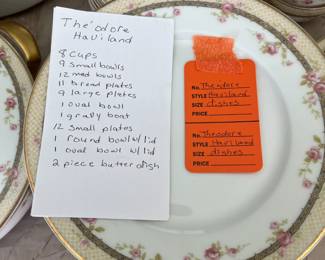 Theódore
Haviland
8 cups
9 small bowls
12 med bowls
11 bread plates
9 large plates
1 oval bowl
1 gravy boat
12 small plates
1 round bowl w/lid
1 oval bowl w/lid
2 piece butter dish
No. Theodore
STYLE Haviland
SIZE dishes
PRICE
No. Theodore
STYLE Haviland
SIZE dishes
PRICE